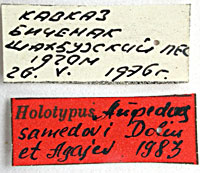 КАВКАЗ
БИЧЕНАК
ШАХБУЗСКИЙ ЛЕС
1970м
26. V. 1976г.
Holotypus Ampedus
samedovi Dolin
et Agajev 1983